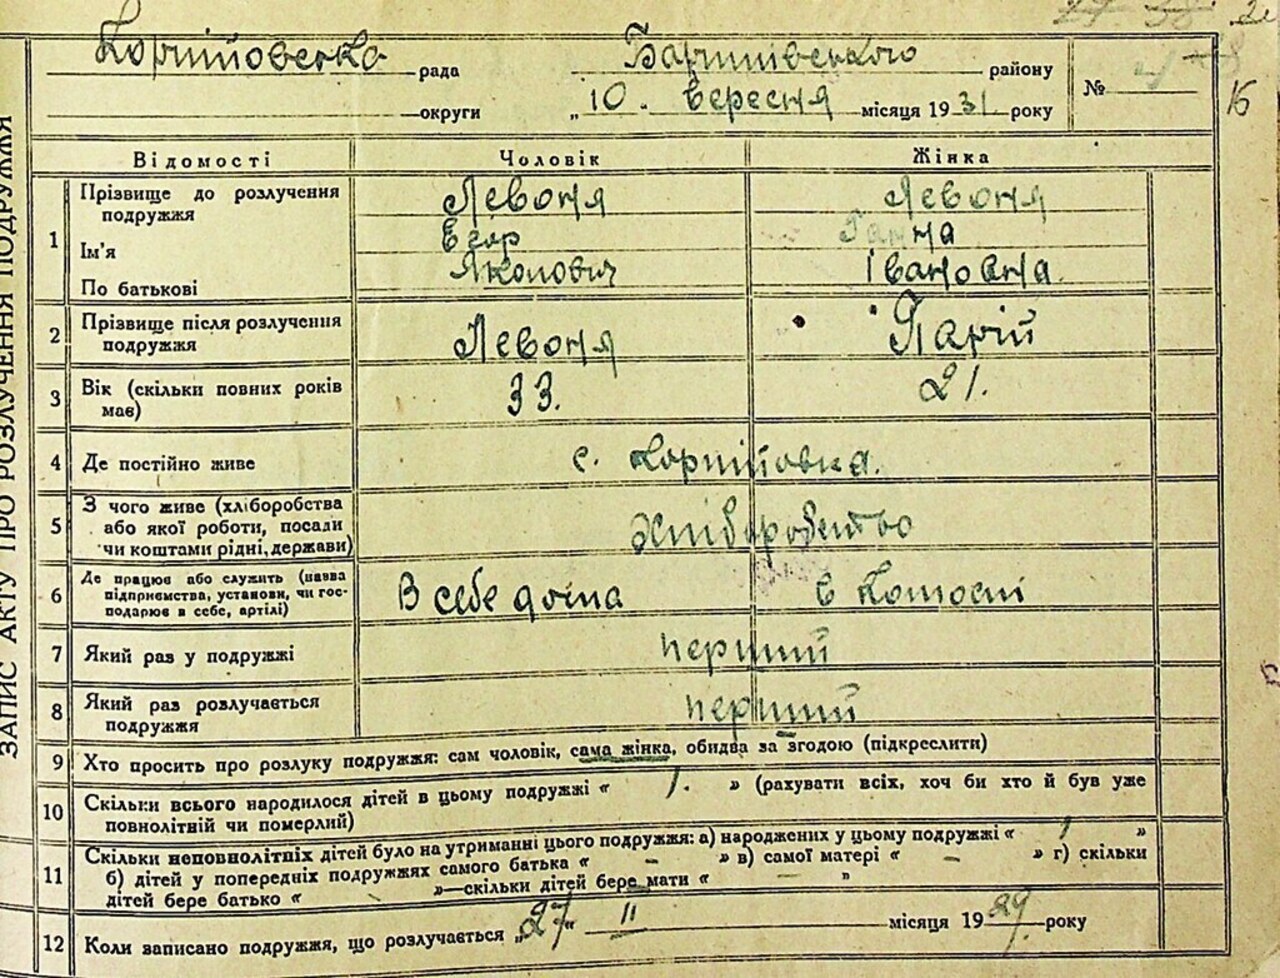 ЗАПИС АКТУ ПРО РОЗЛУЧЕННЯ ПОДРУЖЖЯ
Корнїйовська рада Баришівського району №
округи „10. вересня місяця 1931 року 16
Відомості Чоловік Жінка
1 Прізвище до розлучення подружжя Левоня Левоня
Ім'я Егор Ганна
По батькові Якопович Івановна.
2 Прізвище після розлучення подружжя Левоня Парій
3 Вік (скільки повних років має) 33. 21.
4 Де постійно живе с. Корнїйовка.
5 З чого живе (хліборобства або якої роботи, посади чи коштами рідні, держави) Хліборобство
6 Де працює або служить (назва підприємства, установи, чи господарює в себе, артілі) В себе дома в
7 Який раз у подружжі перший
8 Який раз розлучається подружжя перший
9 Хто просить про розлуку подружжя: сам чоловік, сама жінка, обидва за згодою (підкреслити)
10 Скільки всього народилося дітей в цьому подружжі « 1. » (рахувати всіх, хоч би хто й був уже
повнолітній чи померлий)
11 Скільки неповнолітніх дітей було на утриманні цього подружжя: а) народжених у цьому подружжі « 1 »
б) дітей у попередніх подружжях самого батька « – » в) самої матері « – » г) скільки
дітей бере батько « »—скільки дітей бере мати « — »
12 Коли записано подружжя, що розлучається „27“ II місяця 1929 року